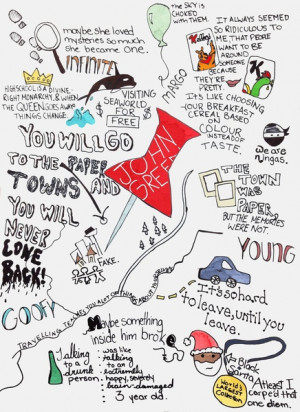 maybe she loved
mysteries so much
she became one.
INFINITE
THE SKY IS
CHOKED
WITH THEM.
MARGO
IT ALWAYS SEEMED
SO RIDICULOUS TO
ME THAT PEOPLE
WANT TO BE
AROUND
SOMEONE
BECAUSE
THEY'RE
PRETTY.
IT'S LIKE CHOOSING
YOUR BREAKFAST
CEREAL BASED
ON
COLOUR
INSTEAD OF
TASTE.
HIGHSCHOOL IS A DIVINE
RIGHT MONARCHY, & WHEN
THE QUEEN GOES AWAY
THINGS CHANGE.
VISITING
SEAWORLD
FOR
FREE
$
we are
ningas.
YOU WILL GO
TO THE PAPER
TOWNS AND
YOU WILL
NEVER
COME
BACK!
JOHN
GREEN
THE
TOWN
WAS
PAPER,
BUT THE MEMORIES
WERE NOT.
FAKE.
YOUNG
GOOFY
It's so hard
to leave, until you
leave.
Maybe something
inside him broke
Talking
to a
drunk
person
was like
talking
to an
extremely
happy, severely
brain-damaged
3 year old.
Black
Santa
World's
largest
collection
Atleast I
carped that
one diem.